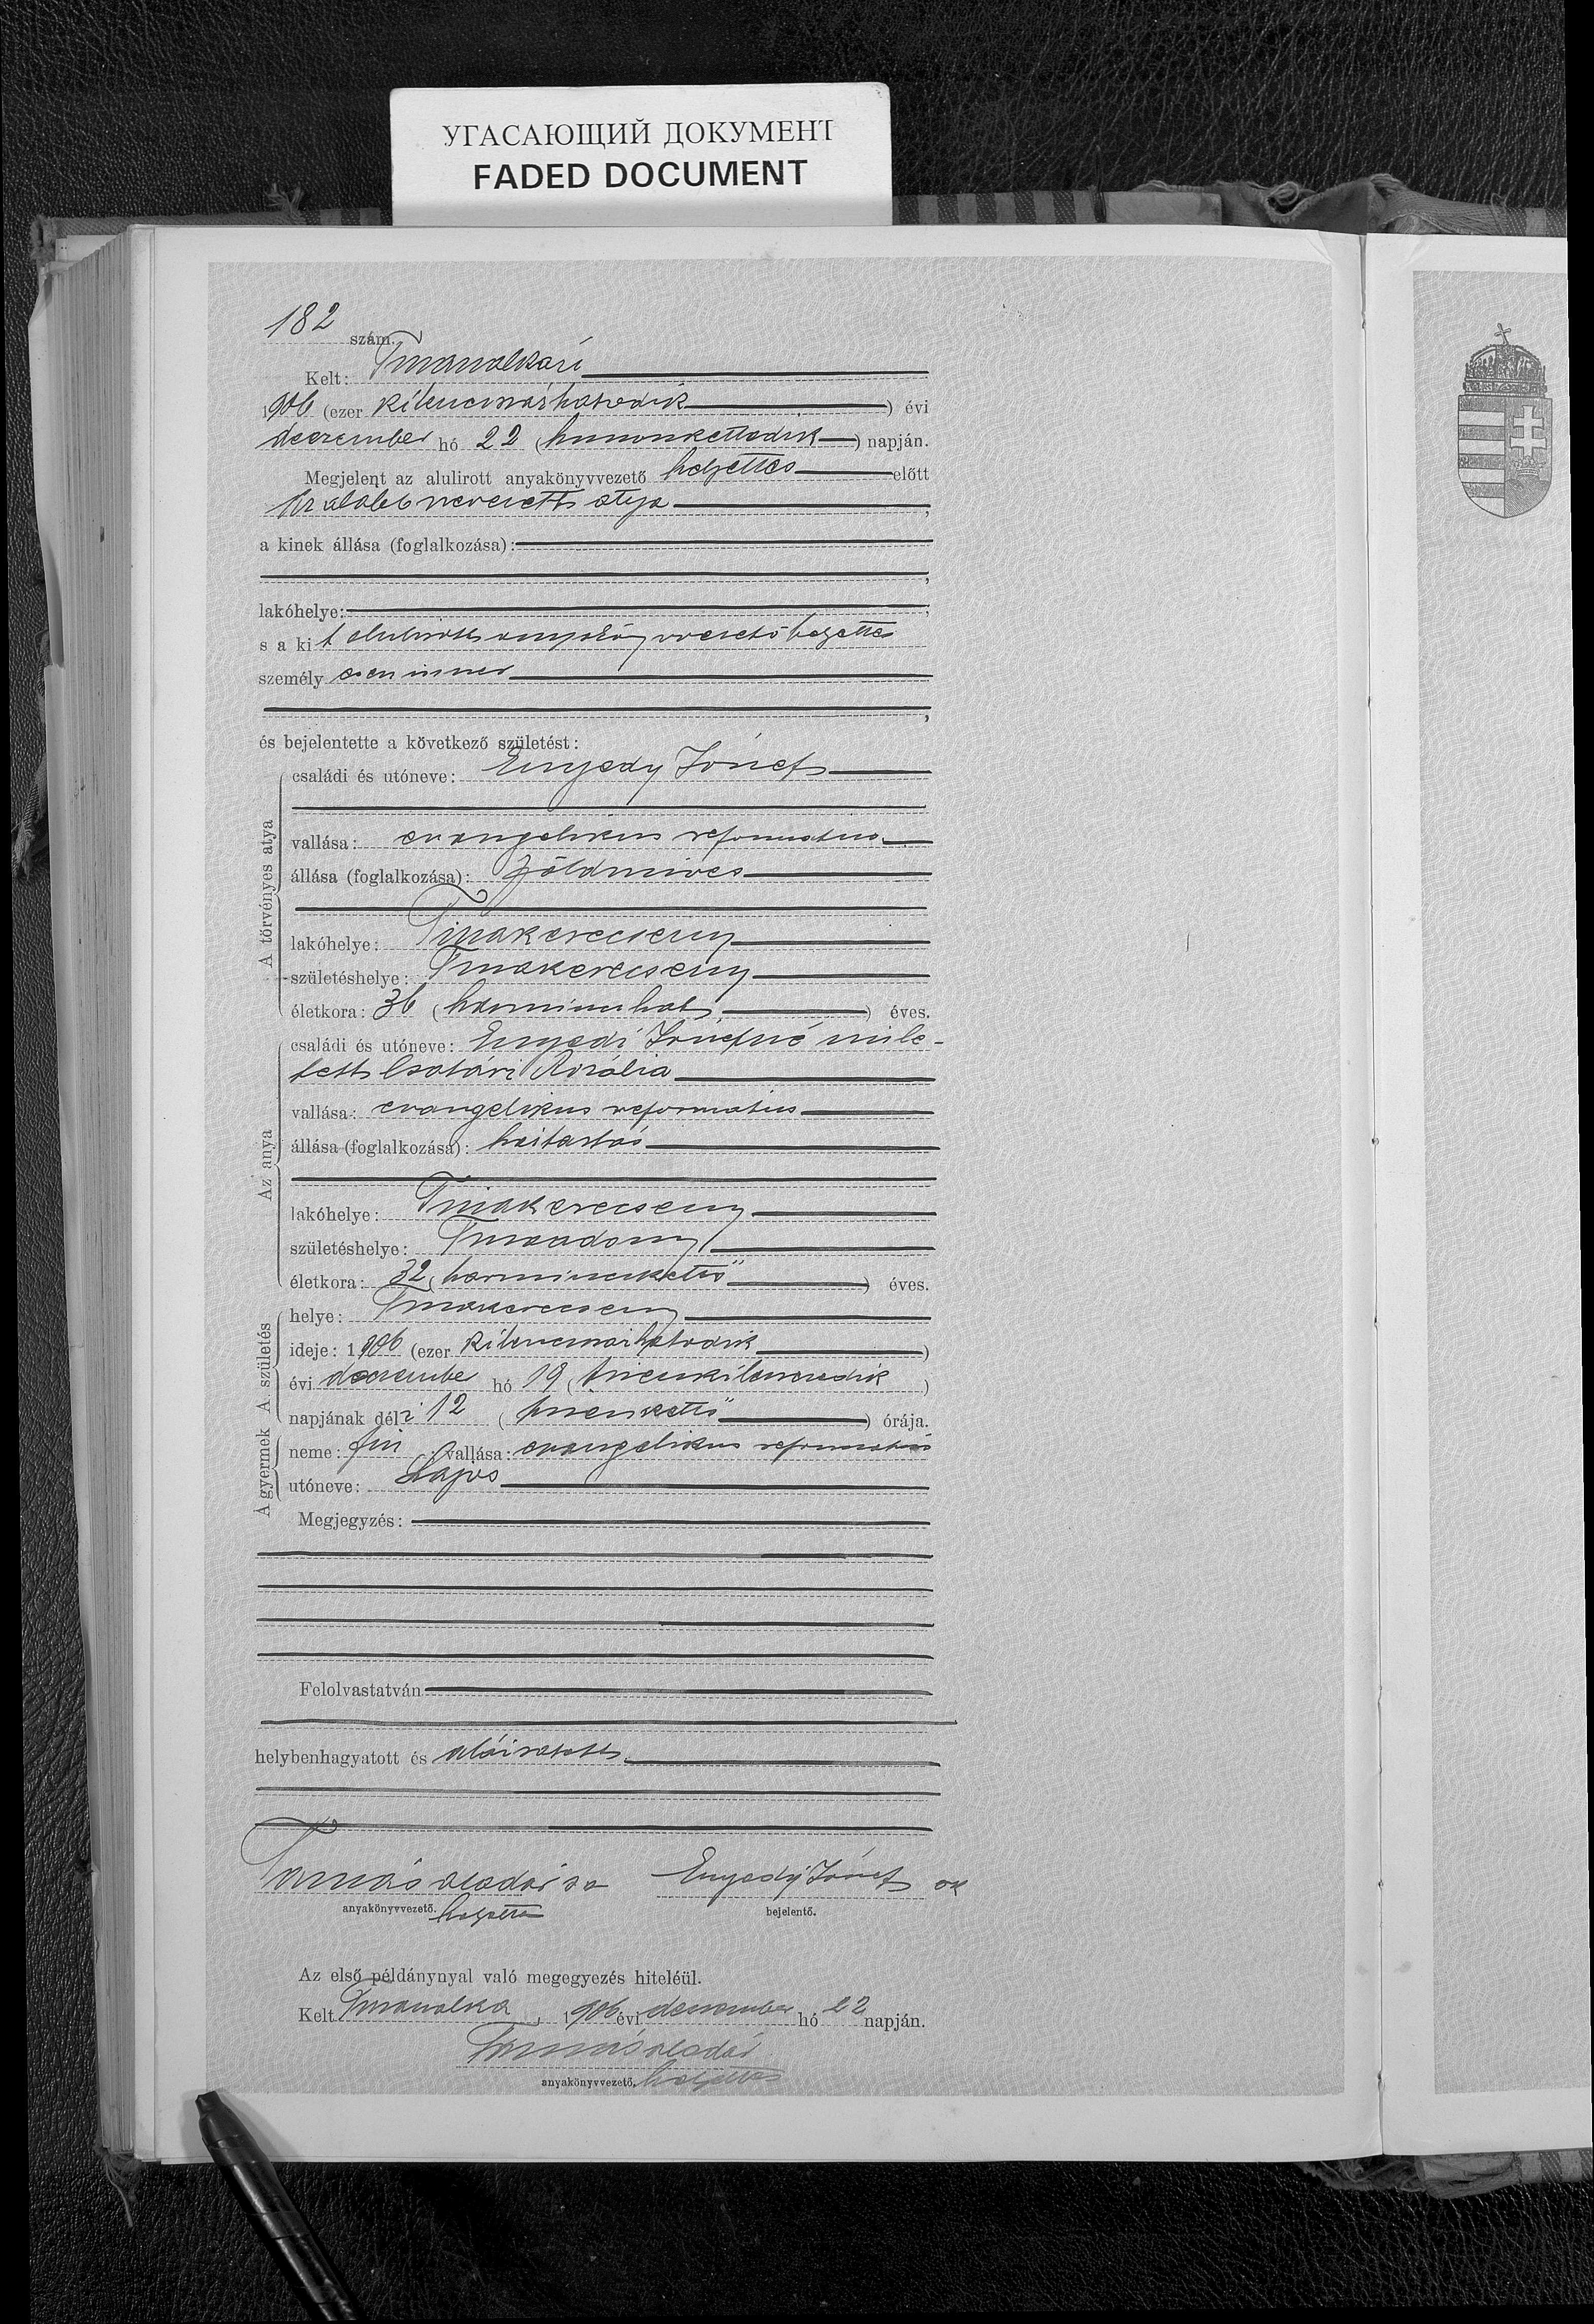 УГАСАЮЩИЙ ДОКУМЕНТ
FADED DOCUMENT
182 szám.
Kelt: Tiszavalkán
1906 (ezer kilencszázhatodik) évi
deczember hó 22 (huszonkettedik) napján.
Megjelent az alulirott anyakönyvvezető helyettes előtt
az alább nevezett atya,
a kinek állása (foglalkozása):
,
lakóhelye: ,
s a kit alulirott anyakönyvvezető helyettes
személyesen ismer
,
és bejelentette a következő születést:
A törvényes atya
családi és utóneve: Enyedy József
vallása: evangelikus reformatus
állása (foglalkozása): földmives
lakóhelye: Tiszakerecseny
születéshelye: Tiszakerecseny
életkora: 36 (harminczhat) éves.
Az anya
családi és utóneve: Enyedi Józsefné szüle-
tett Csatári Rozália
vallása: evangelikus reformatus
állása (foglalkozása): háztartás
lakóhelye: Tiszakerecseny
születéshelye: Tiszaadony
életkora: 32 (harminczkettő) éves.
A születés
helye: Tiszakerecseny
ideje: 1906 (ezer kilencszázhatodik)
évi deczember hó 19 (tizenkilenczedik)
napjának déli 12 (tizenkettő) órája.
A gyermek
neme: fiú; vallása: evangelikus reformatus
utóneve: Lajos
Megjegyzés:
Felolvastatván
helybenhagyatott és aláiratott
Tamás Aladár sa Enyedy József
anyakönyvvezető. helyettes bejelentő.
Az első példánynyal való megegyezés hiteléül.
Kelt Tiszavalka, 1906 évi deczember hó 22 napján.
Tamás Aladár
anyakönyvvezető. helyettes